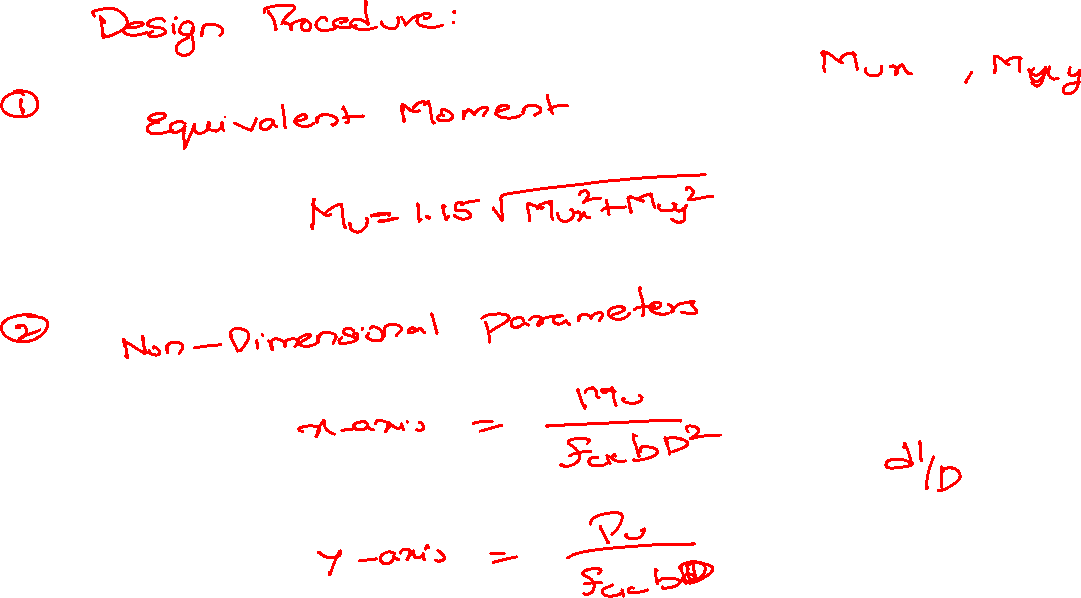 Design Procedure:
Mux , Muy
① Equivalent Moment
Mu = 1.15 √(Mux² + Muy²)
② Non-Dimensional Parameters
x-axis = Mu / (fck b D²)
d'/D
y-axis = Pu / (fck b D)